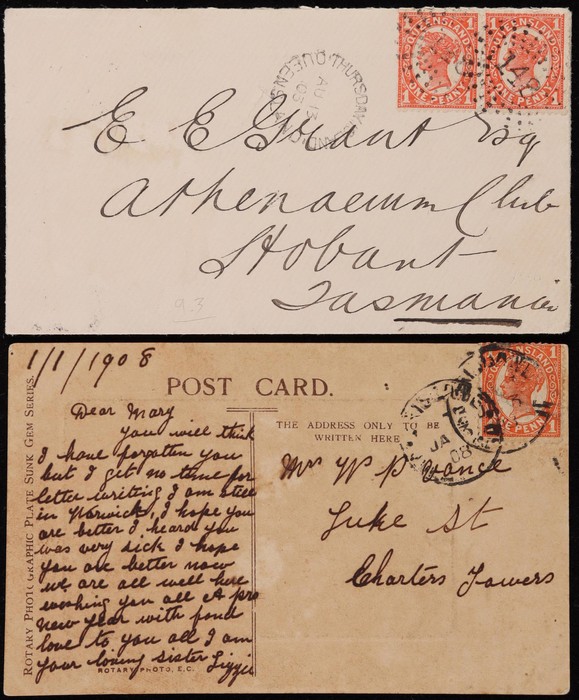 QUEENSLAND
1 ONE PENNY 1
QUEENSLAND
1 ONE PENNY 1
148
THURSDAY ISLAND
AU 13
QUEENSLAND
E E Grant Esq
Athenaeum Club
Hobart
Tasmania
93
1/1/1908
POST CARD.
ROTARY PHOTOGRAPHIC PLATE SUNK GEM SERIES.
Dear Mary
You will think
I have forgotten you
but I get no time for
letter writing I am still
in Warwick, I hope you
are better I heard you
was very sick I hope
you are better now
we are all well here
wishing you all A
New Year with fond
love to you all I am
your loving sister Lizzie
ROTARY PHOTO, E.C.
THE ADDRESS ONLY TO BE
WRITTEN HERE
QUEENSLAND
ONE PENNY 1
JA
08
Mrs W P Vance
Luke St
Charters Towers